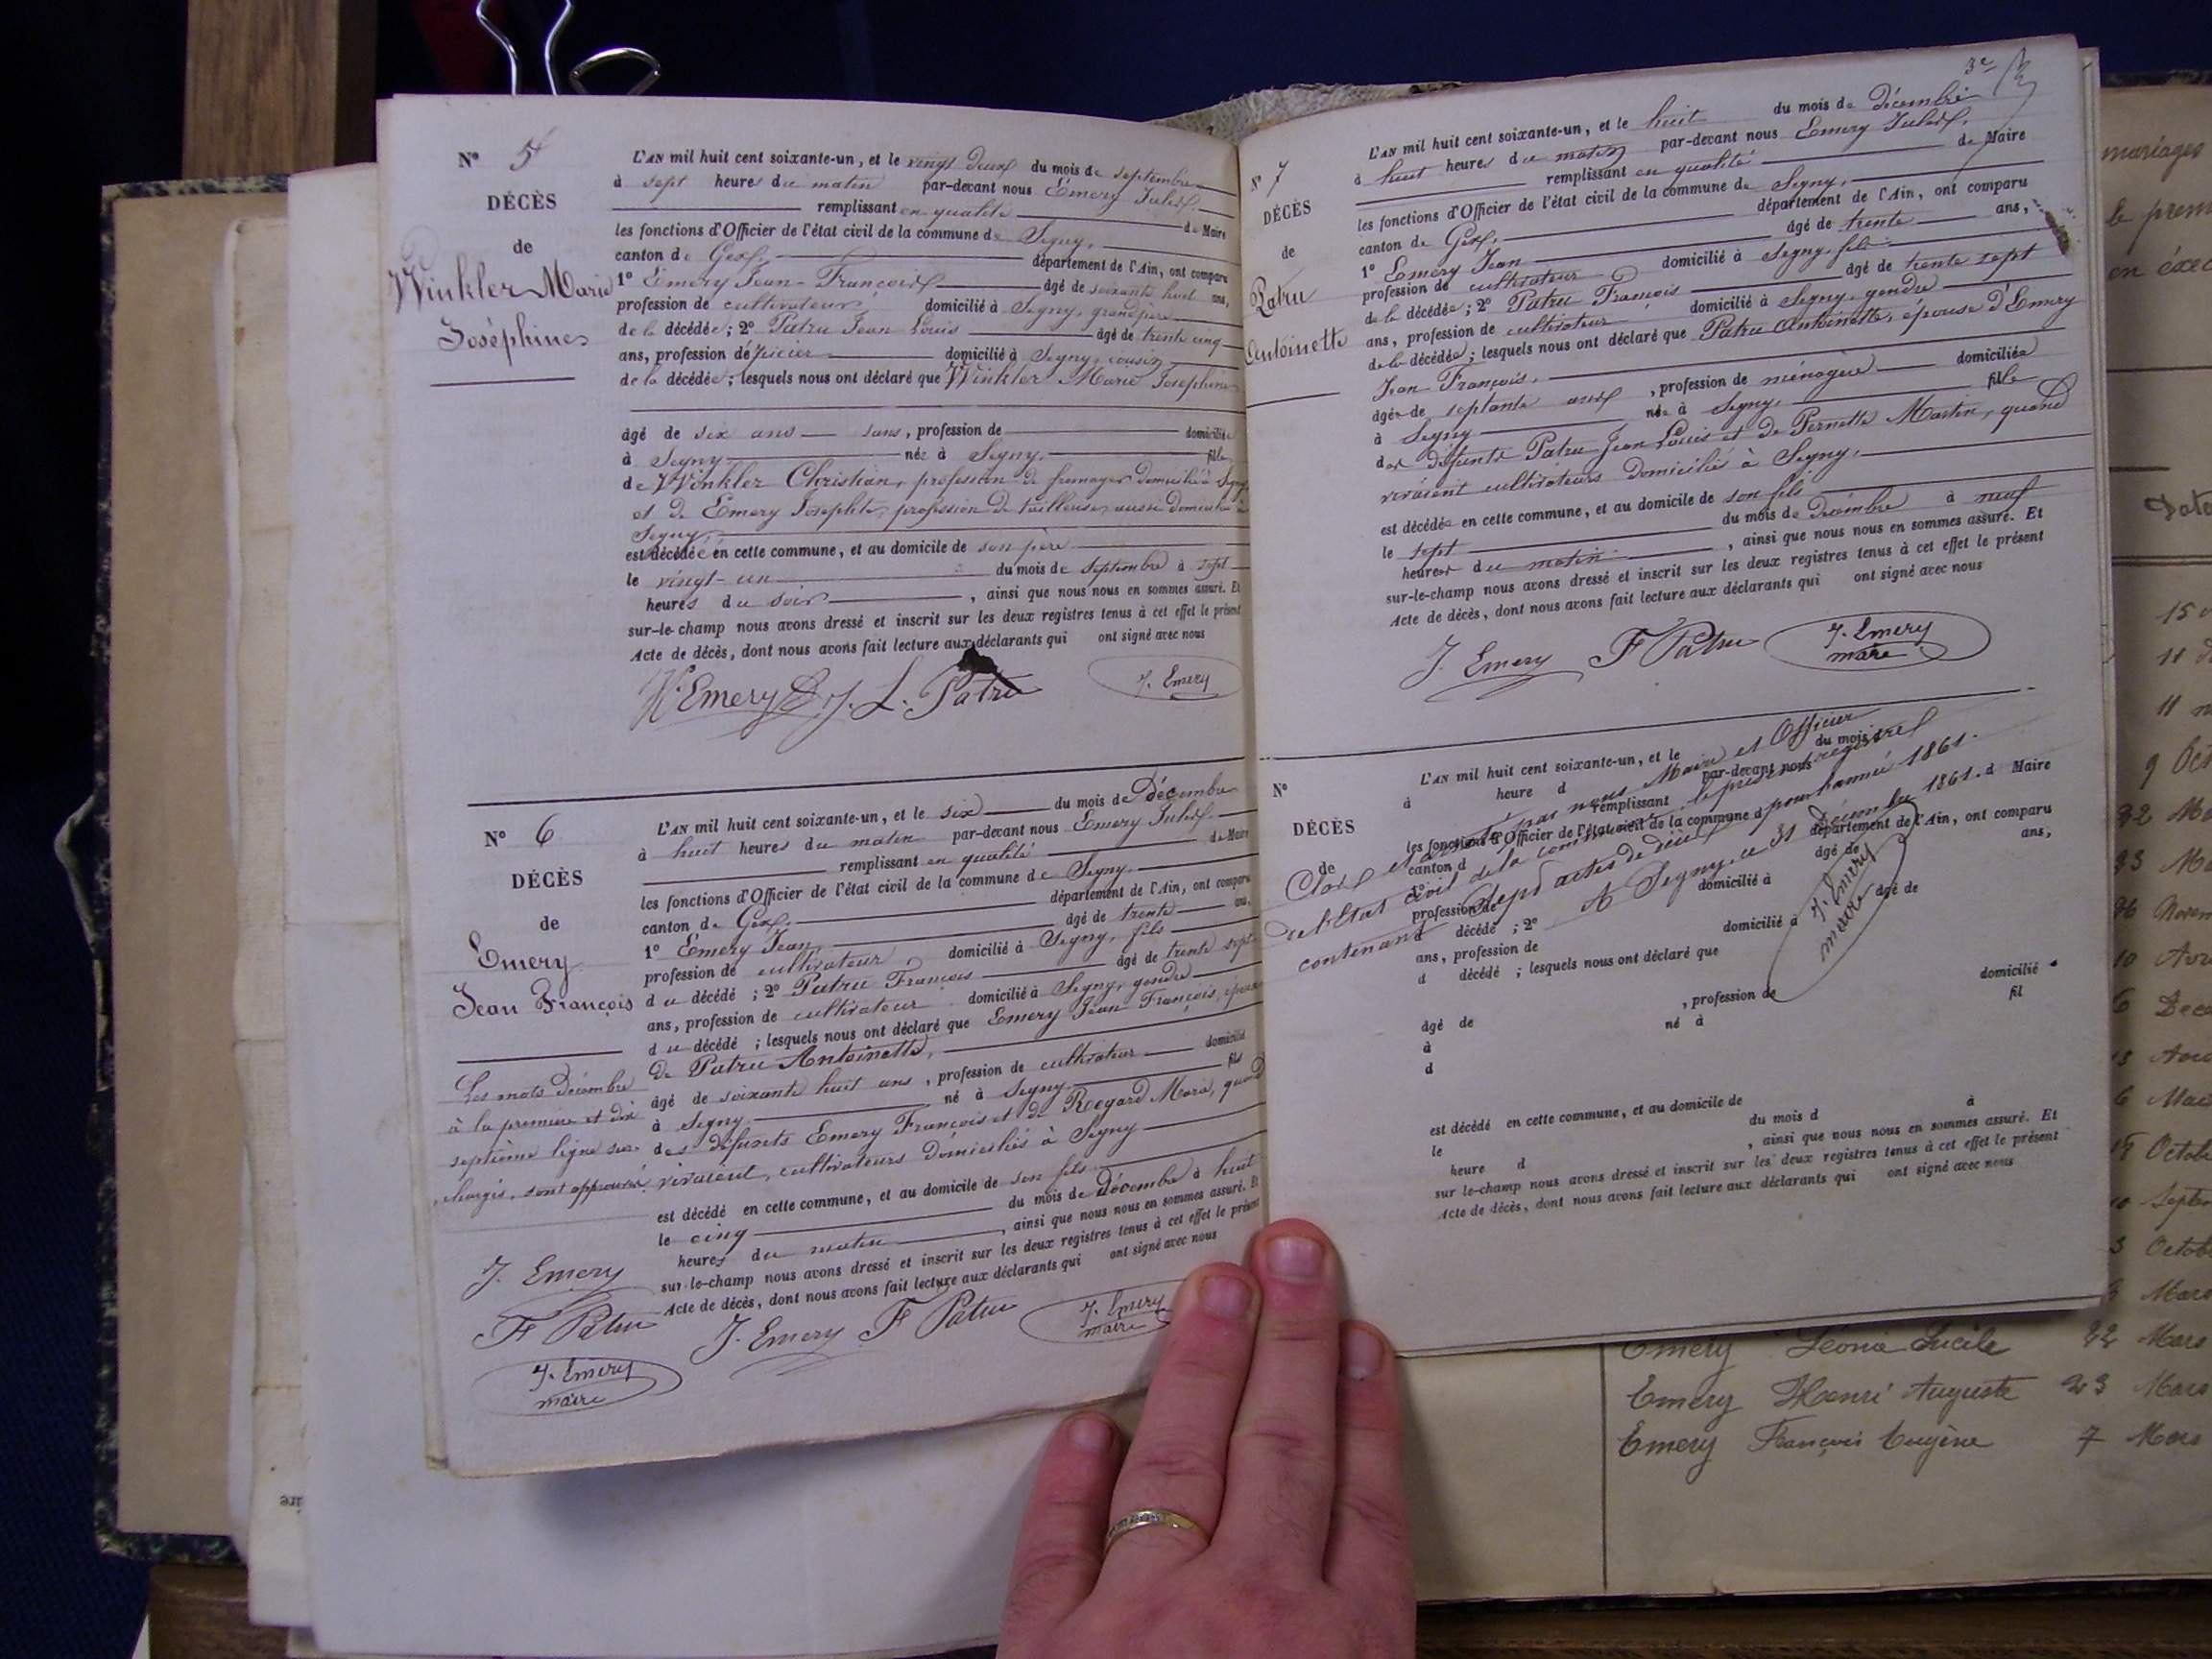 N° 5
DÉCÈS
de
Winkler Marie
Joséphine
L'AN mil huit cent soixante-un, et le vingt deux du mois de septembre
à sept heures du matin par-devant nous Emery Jules
remplissant en qualité de Maire
les fonctions d'Officier de l'état civil de la commune de Segny,
canton de Gex, département de l'Ain, ont comparu
1° Emery Jean-François âgé de soixante huit ans,
profession de cultivateur, domicilié à Segny, grand père
de la décédée; 2° Patru Jean Louis âgé de trente cinq
ans, profession d'épicier domicilié à Segny, cousin
de la décédée; lesquels nous ont déclaré que Winkler Marie Joséphine
âgé de six ans sans, profession de domiciliée
à Segny née à Segny, fille
de Winkler Christian, profession de fromager domicilié à Segny
et de Emery Josephte, profession de tailleuse, aussi domiciliée à
Segny,
est décédée en cette commune, et au domicile de son père
le vingt-un du mois de septembre à sept
heures du soir, ainsi que nous nous en sommes assuré. Et
sur-le-champ nous avons dressé et inscrit sur les deux registres tenus à cet effet le présent
Acte de décès, dont nous avons fait lecture aux déclarants qui ont signé avec nous
Emery J. L. Patru J. Emery
N° 6
DÉCÈS
de
Emery
Jean François
L'AN mil huit cent soixante-un, et le six du mois de Décembre
à huit heures du matin par-devant nous Emery Jules
remplissant en qualité de Maire
les fonctions d'Officier de l'état civil de la commune de Segny
canton de Gex, département de l'Ain, ont comparu
1° Emery Jean, âgé de trente ans,
profession de cultivateur, domicilié à Segny, fils
du décédé; 2° Patru François âgé de trente sept
ans, profession de cultivateur domicilié à Segny, gendre
du décédé; lesquels nous ont déclaré que Emery Jean François, époux
de Patru Antoinette,
âgé de soixante huit ans, profession de cultivateur domicilié
à Segny né à Segny fils
des défunts Emery François et de Regard Marie, quand
vivaient, cultivateurs domiciliés à Segny
est décédé en cette commune, et au domicile de son fils
le cinq du mois de décembre à huit
heures du matin, ainsi que nous nous en sommes assuré. Et
sur-le-champ nous avons dressé et inscrit sur les deux registres tenus à cet effet le présent
Acte de décès, dont nous avons fait lecture aux déclarants qui ont signé avec nous
Les mots décembre
à la première et dix
septième ligne sur
chargés, sont approuvés
J. Emery
F Patru
J. Emery
maire
J. Emery F Patru J. Emery
maire
3e
N° 7
DÉCÈS
de
Patru
Antoinette
L'AN mil huit cent soixante-un, et le huit du mois de décembre
à huit heures du matin par-devant nous Emery Jules
remplissant en qualité de Maire
les fonctions d'Officier de l'état civil de la commune de Segny,
canton de Gex, département de l'Ain, ont comparu
1° Emery Jean âgé de trente ans,
profession de cultivateur domicilié à Segny, fils
de la décédée; 2° Patru François âgé de trente sept
ans, profession de cultivateur domicilié à Segny, gendre
de la décédée; lesquels nous ont déclaré que Patru Antoinette, épouse d'Emery
Jean François,
âgée de septante ans, profession de ménagère domiciliée
à Segny née à Segny, fille
des défunts Patru Jean Louis et de Pernette Martin, quand
vivaient cultivateurs domiciliés à Segny,
est décédée en cette commune, et au domicile de son fils
le sept du mois de décembre à neuf
heures du matin, ainsi que nous nous en sommes assuré. Et
sur-le-champ nous avons dressé et inscrit sur les deux registres tenus à cet effet le présent
Acte de décès, dont nous avons fait lecture aux déclarants qui ont signé avec nous
J. Emery F Patru J. Emery
maire
N°
DÉCÈS
de
L'AN mil huit cent soixante-un, et le du mois d
à heure d par-devant nous
remplissant d Maire
les fonctions d'Officier de l'état civil de la commune d
canton d département de l'Ain, ont comparu
1° âgé de ans,
profession de domicilié à
d décédé ; 2° âgé de
ans, profession de domicilié à
d décédé ; lesquels nous ont déclaré que
âgé de , profession de domicilié
à né à fil
d
est décédé en cette commune, et au domicile de
le du mois d à
heure d , ainsi que nous nous en sommes assuré. Et
sur le-champ nous avons dressé et inscrit sur les deux registres tenus à cet effet le présent
Acte de décès, dont nous avons fait lecture aux déclarants qui ont signé avec nous
Clos et arrêté par nous Maire et Officier
de l'Etat civil de la commune le présent registre
contenant sept actes de décès pour l'année 1861.
A Segny ce 31 Décembre 1861.
J. Emery
maire
mariages
le prem
en exéc
Date
15
11
11 m
9 Oct
22 Ma
23 Ma
26 Novem
10 Avri
6 Dec
13 Avri
6 Mai
18 Octob
10 Septem
3 Octob
Mars
Emery Léonie Lucile 22 Mars
Emery Henri Auguste 23 Mars
Emery François Eugène 7 Mars